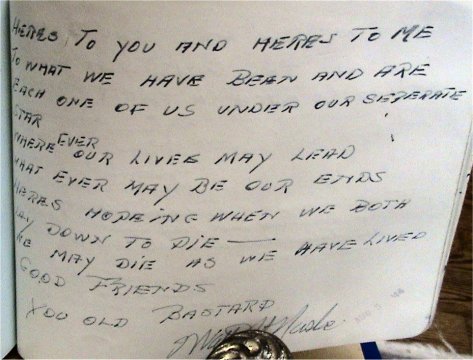 HERES TO YOU AND HERES TO ME
TO WHAT WE HAVE BEEN AND ARE
EACH ONE OF US UNDER OUR SEPERATE
STAR
WHERE EVER OUR LIVES MAY LEAD
WHAT EVER MAY BE OUR ENDS
HERES HOPEING WHEN WE BOTH
LAY DOWN TO DIE —
WE MAY DIE AS WE HAVE LIVED
GOOD FRIENDS
YOU OLD BASTARD